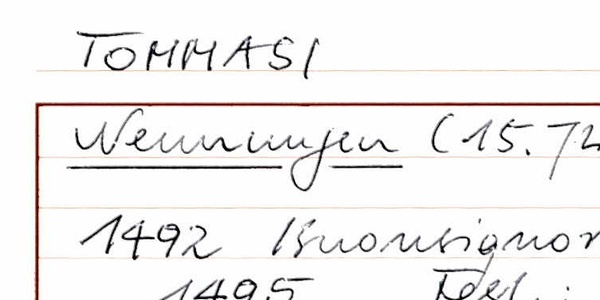 TOMMASI
Nennungen (15.Jh
1492 Buonsignor
1495